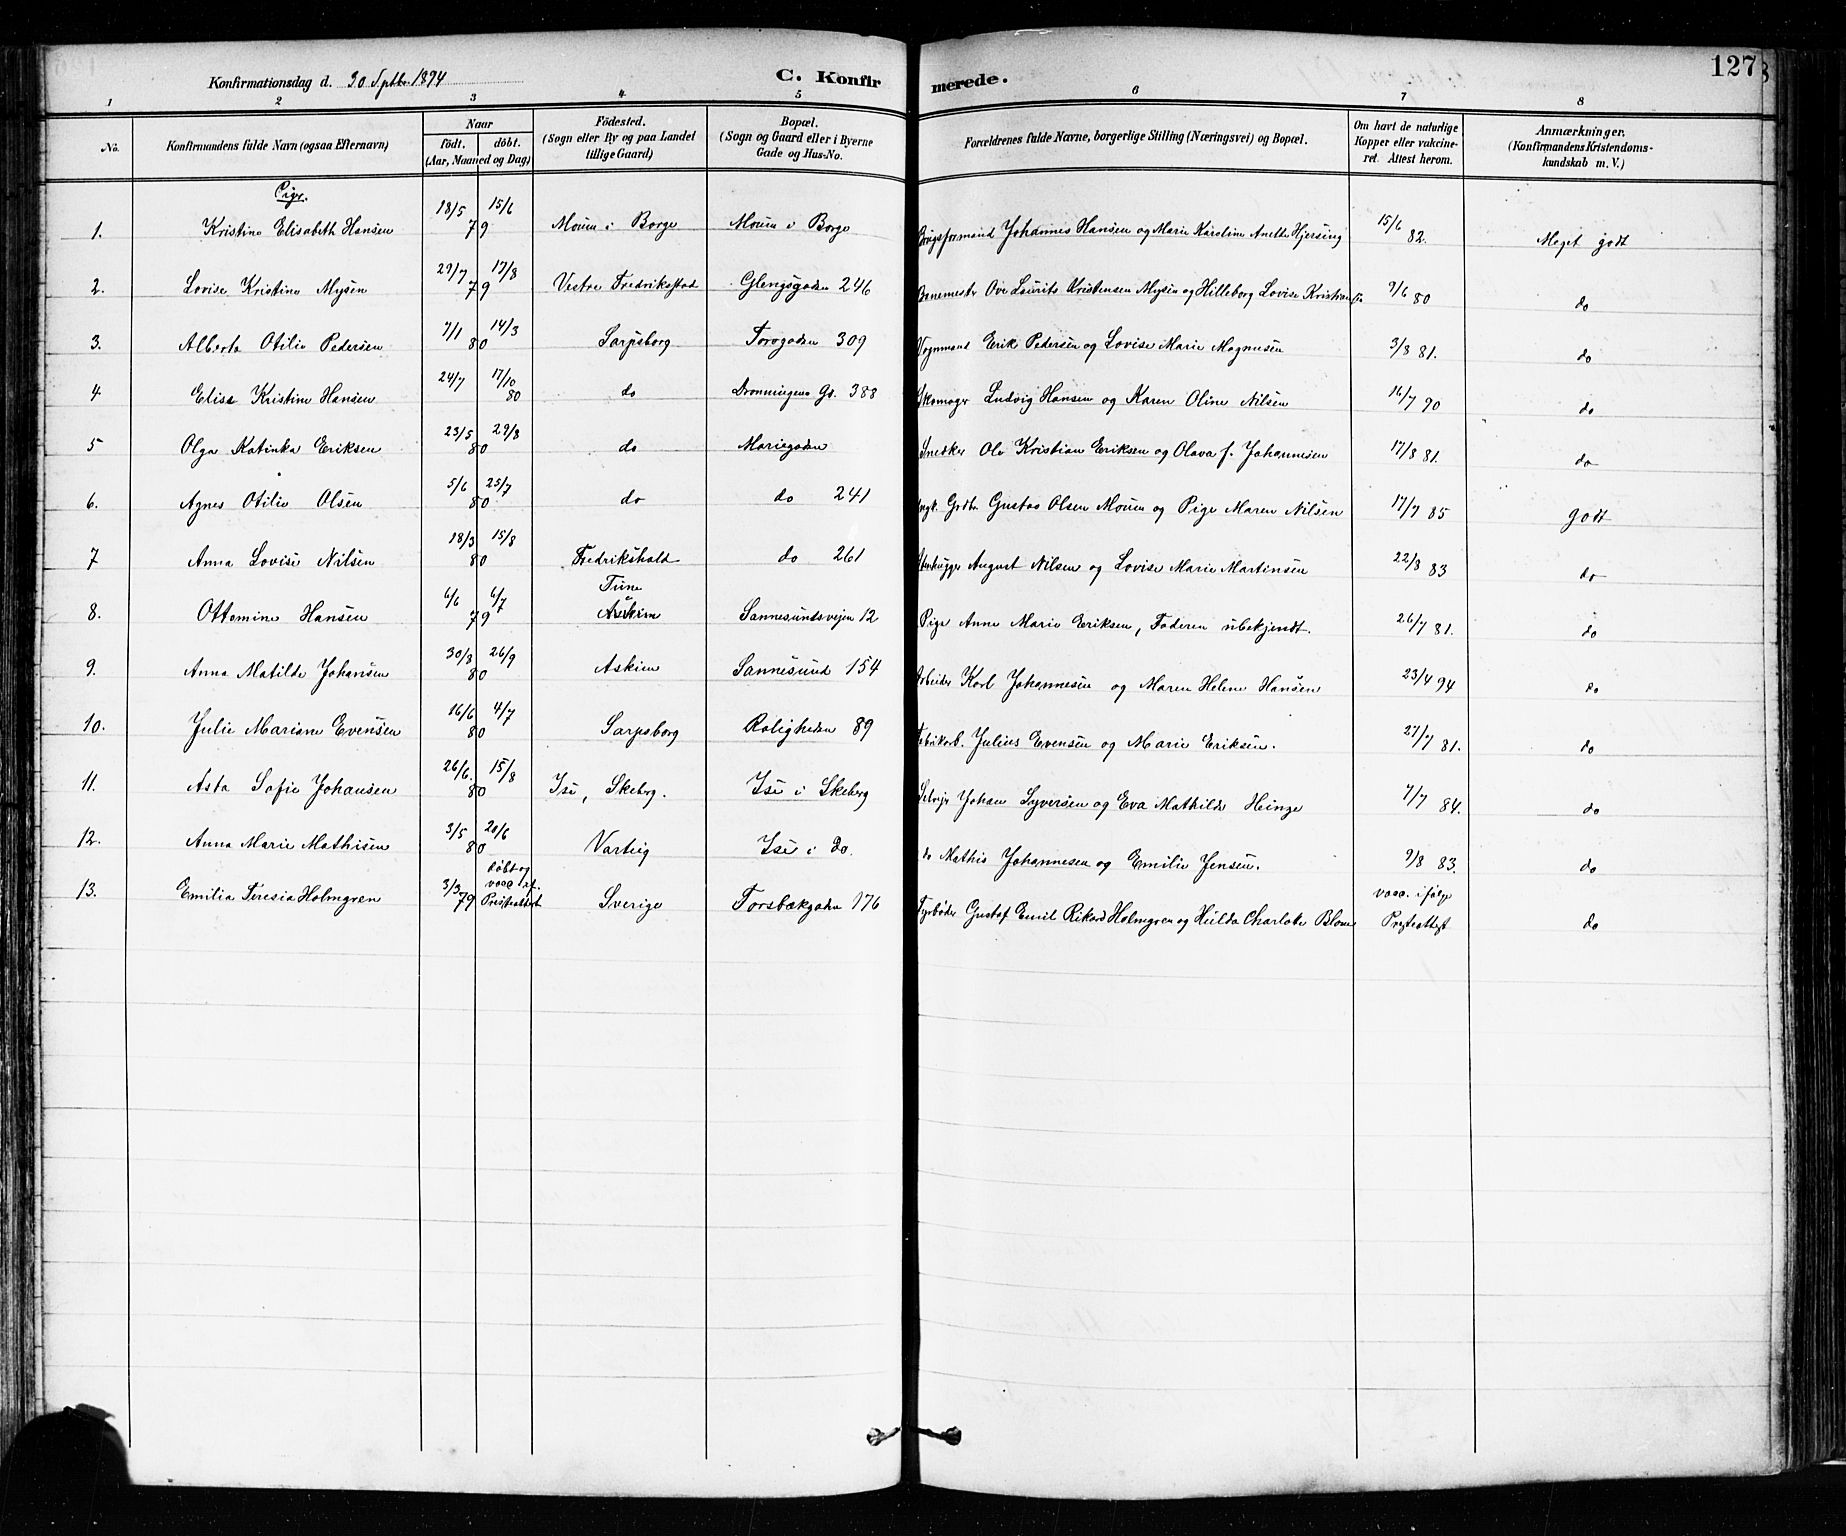 127
Konfirmationsdag d. 30 Septbr. 1894 C. Konfirmerede.
1 2 3 4 5 6 7 8
No. Konfirmandens fulde Navn (ogsaa Efternavn) Naar födt. döbt. (Aar, Maaned og Dag) Födested. (Sogn eller By og paa Landet tillige Gaard) Bopæl. (Sogn og Gaard eller i Byerne Gade og Hus-No. Forældrenes fulde Navne, borgerlige Stilling (Næringsvei) og Bopæl. Om havt de naturlige Kopper eller vakcineret. Attest herom. Anmærkninger. (Konfirmandens Kristendomskundskab m. V.)
Piger.
1. Kristine Elisabeth Hansen 18/5 15/6 79 Moum i Borge Moum i Borge Brugsformand Johannes Hansen og Marie Karoline Anette Hjersing 15/6 82. Meget godt
2. Lovise Kristine Mysen 29/7 17/8 79 Vestre Fredriksstad Glengsgaden 246 Banemester Ove Laurits Kristensen Mysen og Hilleborg Lovise 9/6 80 do
3. Alberta Otilie Pedersen 7/1 14/3 80 Sarpsborg Torvgaden 309 Vognmand Erik Pedersen og Lovise Marie Magnusen 3/8 81. do
4. Elise Kristine Hansen 24/7 17/10 80 do Dronningens Gd. 388 Skomager Ludvig Hansen og Karen Oline Nilsen 16/7 90 do
5 Olga Katinka Eriksen 23/5 29/8 80 do Mariegaden Snedker Ole Kristian Eriksen og Olava f. Johannesen 17/8 81. do
6. Agnes Otilie Olsen 5/6 25/7 80 do do 241 Gustav Olsen Moum og Pige Maren Nilsen 17/7 85 godt
7 Anna Lovise Nilsen 18/3 15/8 80 Fredrikshald do 261 Stenhugger August Nilsen og Lovise Marie Martinsen 22/8 83 do
8. Ottomine Hansen 6/6 6/7 79 Trine Askim Sannesundsvejen 12 Pige Anne Marie Eriksen, Faderen ubekjendt. 26/7 81. do
9. Anna Matilde Johansen 30/8 26/9 80 Askim Sannesund 154 Arbeider Karl Johannesen og Maren Helene Hansen 23/4 94 do
10. Julie Mariane Evensen 16/6 4/7 80 Sarpsborg Roligheden 89 Fabrikarb. Julius Evensen og Marie Eriksen. 27/7 81. do
11. Asta Sofie Johansen 26/6. 15/8 80 Ise, Skeberg. Ise i Skeberg Selveier Johan Syversen og Eva Mathilde Heinze 7/7 84. do
12. Anna Marie Mathisen 3/5 20/6 80 Varteig Ise i do. do Mathis Johannesen og Emilie Jensen. 9/8 83. do
13. Emilia Teresia Holmgren 3/3 79 döbt og vacc. if. Presteattest Sverige Torsbækgaden 176 Fyrbøder Gustaf Emil Rikard Holmgren og Hulda Charlote Blom vacc. ifølge Presteattest do